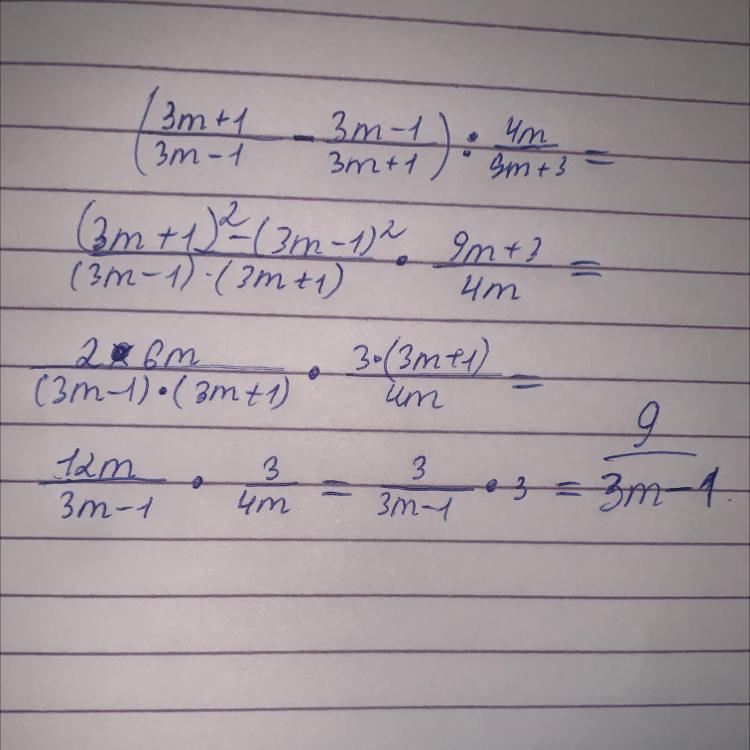 (3m+1/3m-1 - 3m-1/3m+1) : 4m/9m+3 =
(3m+1)²-(3m-1)²/(3m-1)·(3m+1) · 9m+3/4m =
2·6m/(3m-1)·(3m+1) · 3·(3m+1)/4m =
12m/3m-1 · 3/4m = 3/3m-1 · 3 = 9/3m-1